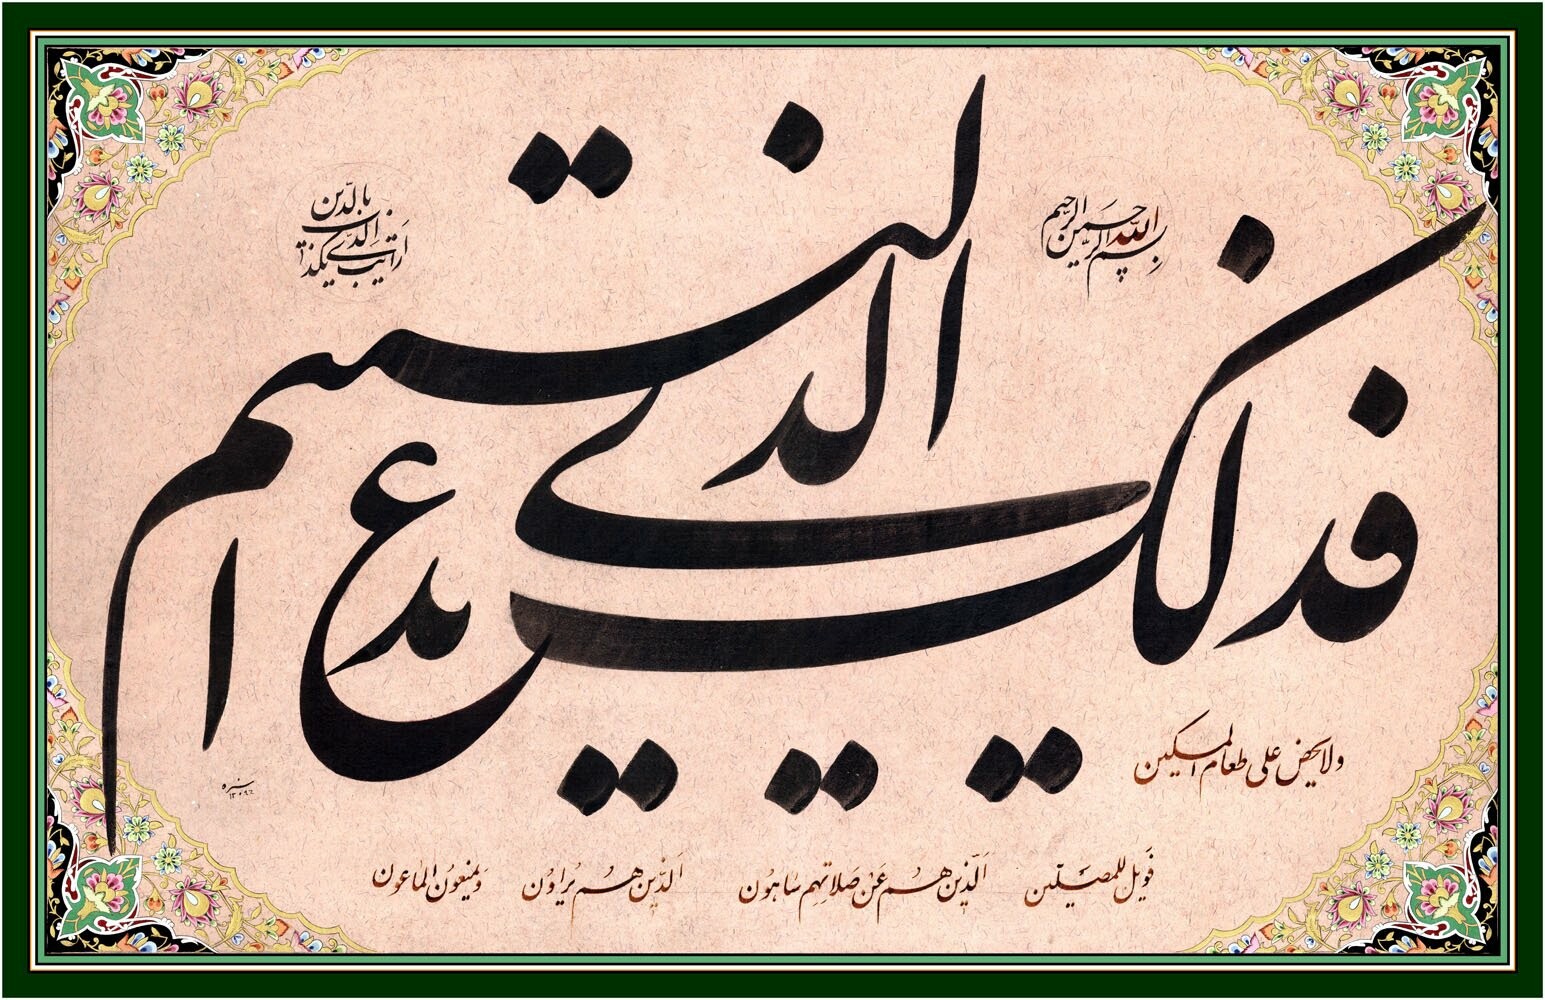 بسم الله الرحمن الرحیم
اَرایت الَّذی یکذب
بالدّین
فذلک الذی یدع الیتیم
ولا یحض علی طعام المسکین
فَویل للمصلّین الَّذین هم عَن صَلاتِهِم سٰاهوُن الَّذین هُم یُراوُن وَیمنعوُن الماعون